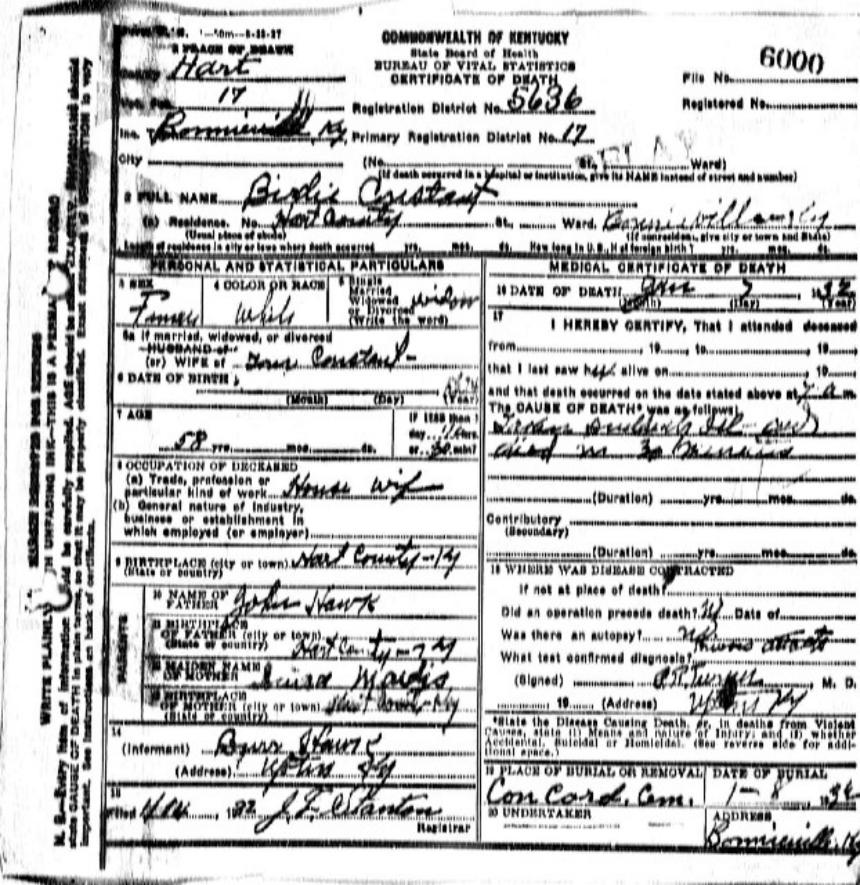 COMMONWEALTH OF KENTUCKY
State Board of Health
BUREAU OF VITAL STATISTICS
CERTIFICATE OF DEATH
File No. 6000
Registered No.
PLACE OF DEATH
Hart
17
Registration District No. 5636
Bonnieville Ky, Primary Registration District No. 17
City (No. St., Ward)
(If death occurred in a hospital or institution, give its NAME instead of street and number)
2 FULL NAME Birdie Constant
(a) Residence. No. Hart County St., Ward. Bonnieville Ky
(Usual place of abode) (If nonresident, give city or town and State)
Length of residence in city or town where death occurred yrs. mos. ds. How long in U. S., if of foreign birth? yrs. mos. ds.
PERSONAL AND STATISTICAL PARTICULARS
3 SEX
4 COLOR OR RACE White
5 Single Married Widowed or Divorced (Write the word) widow
5a If married, widowed, or divorced
HUSBAND of
(or) WIFE of Constant
6 DATE OF BIRTH
(Month) (Day) (Year)
7 AGE
58 yrs. mos. ds.
IF LESS than 1 day hrs. or 30 min?
8 OCCUPATION OF DECEASED
(a) Trade, profession or particular kind of work House wife
(b) General nature of industry, business or establishment in which employed (or employer)
9 BIRTHPLACE (city or town) Hart County-Ky
(State or country)
PARENTS
10 NAME OF FATHER John Hawk
11 BIRTHPLACE OF FATHER (city or town) Hart County-Ky
(State or country)
12 MAIDEN NAME OF MOTHER
13 BIRTHPLACE OF MOTHER (city or town) Hart County-Ky
(State or country)
14
(Informant) Burr Hawk
(Address) Upton Ky
15
Filed 1932 J. F. Stanton
Registrar
MEDICAL CERTIFICATE OF DEATH
16 DATE OF DEATH Jan 7 1932
(Month) (Day) (Year)
17
I HEREBY CERTIFY, That I attended deceased
from 19 to 19
that I last saw her alive on 19
and that death occurred on the date stated above at 7 a m.
The CAUSE OF DEATH* was as follows:
Taken suddenly ill and
died in 30 minutes
(Duration) yrs. mos. ds.
Contributory
(Secondary)
(Duration) yrs. mos. ds.
18 WHERE WAS DISEASE CONTRACTED
if not at place of death?
Did an operation precede death? No Date of
Was there an autopsy? No
What test confirmed diagnosis?
(Signed) Turner M. D.
19 (Address) Upton Ky
*State the Disease Causing Death, or, in deaths from Violent
Causes, state (1) Means and nature of Injury; and (2) whether
Accidental, Suicidal or Homicidal. (See reverse side for addi-
tional space.)
19 PLACE OF BURIAL OR REMOVAL
Concord. Cem.
DATE OF BURIAL
1-8 1932
20 UNDERTAKER
ADDRESS
Bonnieville. Ky
MARGIN RESERVED FOR BINDING
WRITE PLAINLY WITH UNFADING INK—THIS IS A PERMANENT RECORD